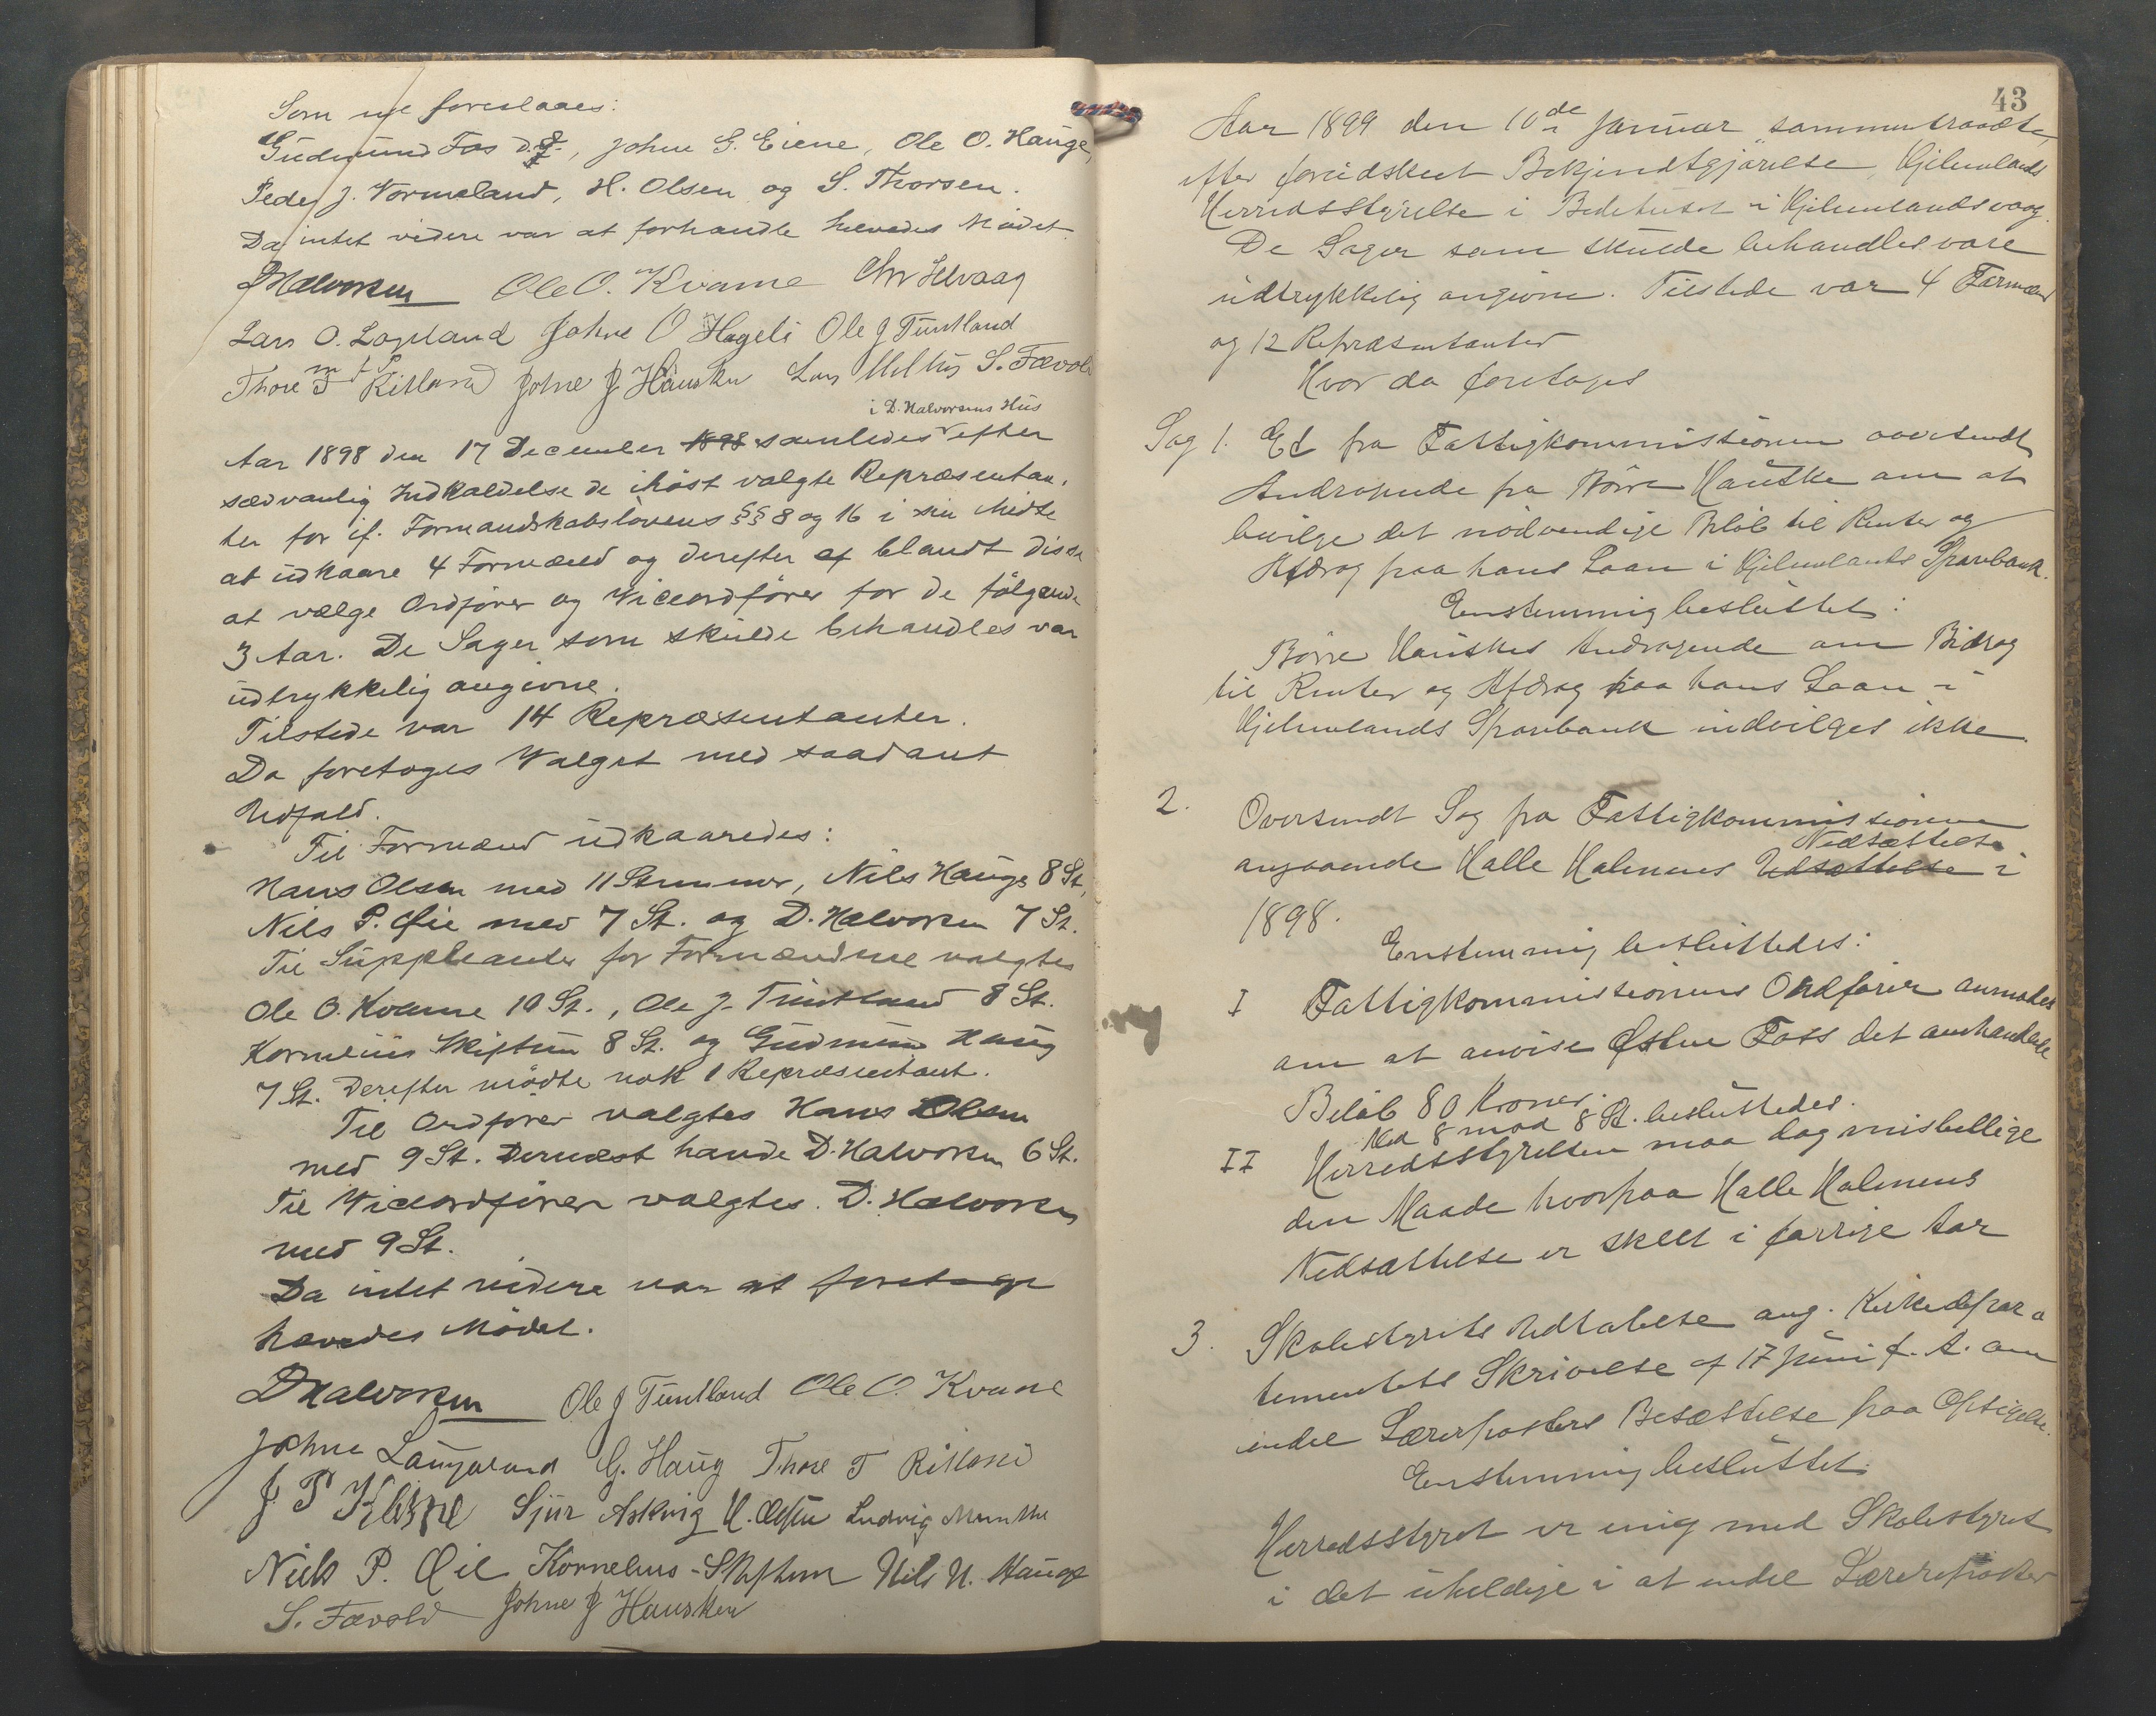 Som nye foreslaaes:
Gudmund Fos d.y., Johne G. Eiene, Ole O. Hauge,
Peder J. Vormeland, H. Olsen og S. Thorsen.
Da intet videre var at forhandle hævedes Mødet.
DHalvorsen Ole O. Kvame Chr Helvaag
Lars O. Lapeland Johne O Hageli Ole J Tuntland
m f P
Thore T Ritland Johne J Hausken Lars S. Fævold
i D. Halvorsens Hus
Aar 1898 den 17 December 1898 samledes efter
sædvanlig Indkaldelse de ihøst valgte Repræsentan-
ter for if. Formandskabslovens §§ 8 og 16 i sin Midte
at udkaare 4 Formænd og derefter af blandt disse
at vælge Ordfører og Viceordfører for de følgende
3 Aar. De Sager som skulde behandles var
udtrykkelig angivne.
Tilstede var 14 Repræsentanter.
Da foretoges Valget med saadant
Udfald.
Til Formænd udkaaredes:
Hans Olsen med 11 Stemmer, Nils Hauge 8 St,
Nils P. Øie med 7 St. og D. Halvorsen 7 St.
Til Suppleanter for Formændene valgtes
Ole O. Kvame 10 St., Ole J. Tuntland 8 St.
Kornelius Skiftun 8 St. og Gudmund Haug
7 St. Derefter mødte nok 1 Repræsentant.
Til Ordfører valgtes Hans Olsen
med 9 St. Dernæst havde D. Halvorsen 6 St.
Til Viceordfører valgtes D. Halvorsen
med 9 St.
Da intet videre var at foretage
hævedes Mødet.
DHalvorsen Ole J Tuntland Ole O. Kvame
Johne Laugaland G. Haug Thore T Ritland
J. P Sjur Askvig H. Olsen Ludvig Munthe
Niels P. Øie Kornelius Skiftun Nils N. Hauge
S. Fævold Johne J Hausken
43
Aar 1899 den 10de Januar sammentraadte,
efter forudskeet Bekjendtgjørelse, Hjelmelands
Herredsstyrelse i Bedehuset i Hjelmelandsvaag.
De Sager som skulde behandles vare
udtrykkelig angivne. Tilstede var 4 Formænd
og 12 Repræsentanter
Hvor da foretoges
Sag 1. Et fra Fattigkommissionen oversendt
Andragende fra Børre Hauske om at
bevilge det nødvendige Beløb til Renter og
Afdrag paa hans Laan i Hjelmelands Sparebank.
Enstemmig besluttet:
Børre Hauskes Andragende om Bidrag
til Renter og Afdrag paa hans Laan i
Hjelmelands Sparebank indvilges ikke.
2. Oversendt Sag fra Fattigkommissionen
Nedsættelse
angaaende Halle Halmens Udsættelse i
1898.
Enstemmig besluttedes:
I Fattigkommissionens Ordfører anmodes
om at anvise Østen Foss det omhandlede
Beløb 80 Kroner.
Med 8 mod 8 St. besluttedes.
II Herredsstyrelsen maa dog misbillige
den Maade hvorpaa Halle Halmens
Nedsættelse er skeet i forrige Aar
3. Skolestyrets Udtalelse ang. Kirkedepar-
tementets Skrivelse af 17 Juni f. A. om
endel Lærerposters Besættelse paa Opsigelse.
Enstemmig besluttet:
Herredsstyret er enig med Skolestyret
i det uheldige i at endel Lærerposter